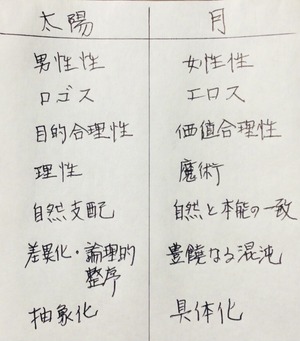 太陽 月
男性性 女性性
ロゴス エロス
目的合理性 価値合理性
理性 魔術
自然支配 自然と本能の一致
差異化・論理的 豊饒なる混沌
整序
抽象化 具体化